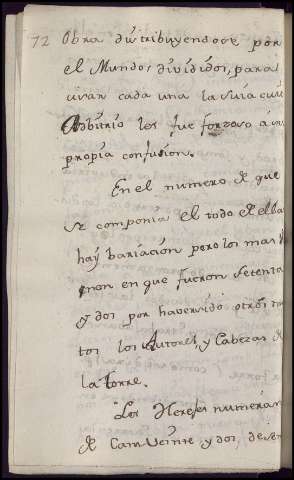 72 Obra distribuyendose por
el Mundo, divididos, para
vivan cada una la suia
Adbitrio les fue forzoso a
propria confusion.
En el numero de que
se componia el todo de ella
háy bariación pero los mas
non en que fueron setenta
y dos por haver sido otros
tos los Autores, y Cabezas de
la torre.
Los numeran
de Cam Veinte, y dos, de